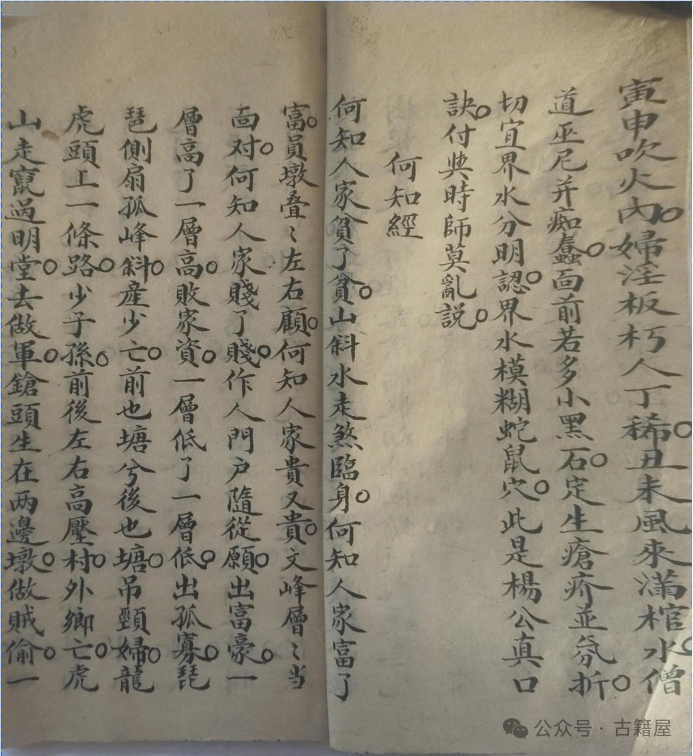 寅申吹火內○婦淫板朽人丁稀○丑未風來滿棺水○僧
道巫尼并痴蠢○面前若多小黑石○定生瘡疥並氛折○
切宜界水分明認○界水模糊蛇鼠穴○此是楊公真口
訣○付與時師莫亂説○
何知經
何知人家貧了貧○山斜水走煞臨身○何知人家富了
富○員墩叠〻左右顧○何知人家貴又貴○文峰層〻当
面对○何知人家賤了賤○作人門户隨從願○出富豪○一
層高了一層高○敗家資○一層低了一層低○出孤寡○琵
琶側扇孤峰斜○産少亡○前也塘兮後也塘○吊頸婦○龍
虎頭上一條路○少子孫○前後左右高壓村○外鄉亡○虎
山走竄過明堂○去做軍○鎗頭生在两邊墩○做賊偷○一
公众号·古籍屋